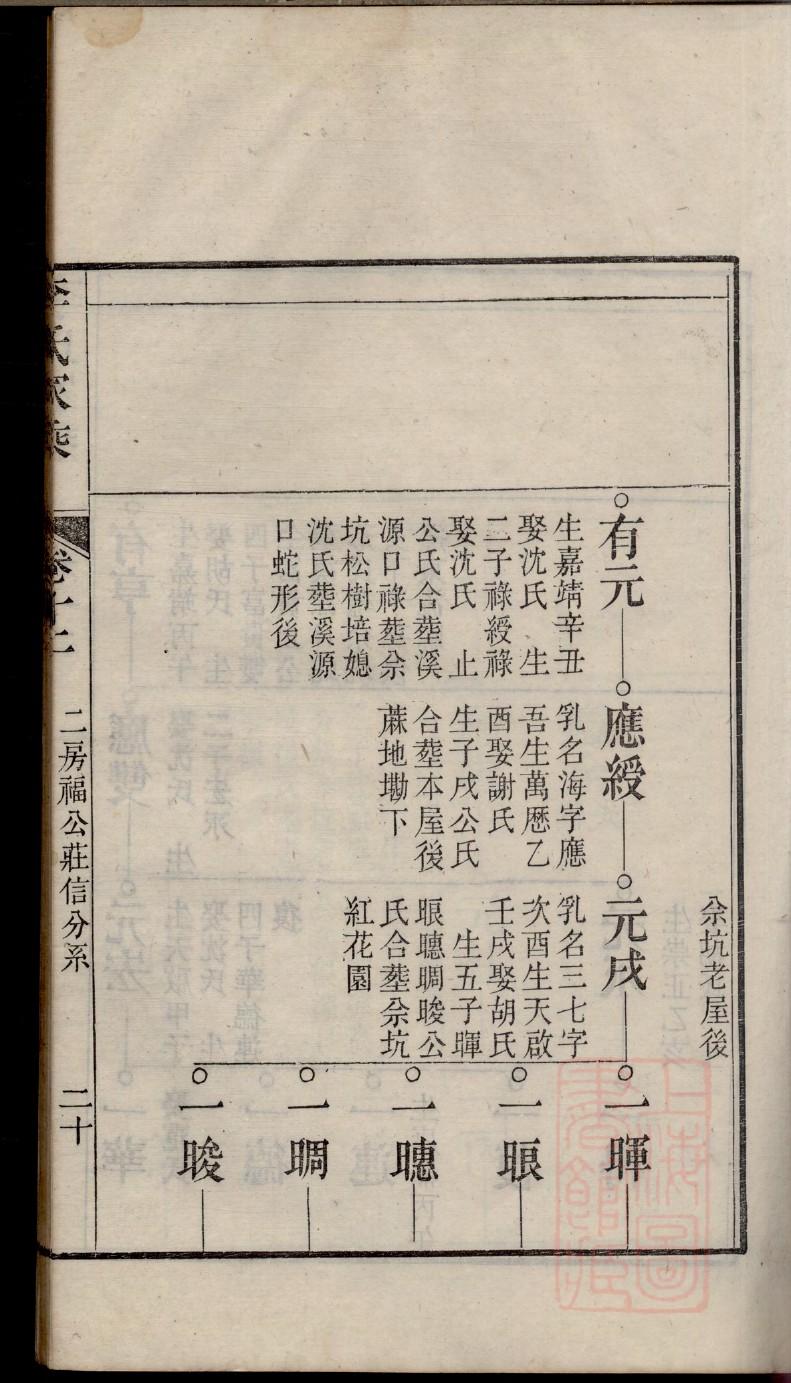 佘坑老屋後
有元
生嘉靖辛丑
娶沈氏　生
二子祿綬祿
娶沈氏　止
公氏合塟溪
源口祿塟佘
坑松樹培媳
沈氏塟溪源
口蛇形後
應綬
乳名海字應
吾生萬厯乙
酉娶謝氏
生子戌公氏
合塟本屋後
蔴地塝下
元戌
乳名三七字
次酉生天啟
壬戌娶胡氏
生五子暉
㫰暳晭晙公
氏合塟佘坑
紅花園
一暉
一㫰
一暳
一晭
一晙
李氏家乘
卷十二
二房福公莊信分系
二十
上海圖書館藏